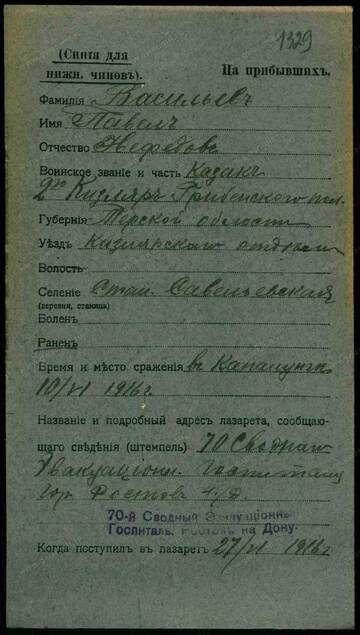 1329
(Синiя для
нижн. чиновъ).
На прибывшихъ.
Фамилія Васильевъ
Имя Павелъ
Отчество Нефедовъ
Воинское званіе и часть Казакъ
2го Кизляръ Гребенского пол.
Губернія Терской области
Уѣздъ Кизлярскаго отдѣла
Волость
Селеніе Стан. Савельевская
(деревня, станица)
Боленъ
Раненъ
Время и мѣсто сраженія
10/VI 1916 г.
Названіе и подробный адресъ лазарета, сообщаю-
щаго свѣдѣнія (штемпель) 70 Сводный
Эвакуаціонн. Госпиталь
гор. Ростовъ н/Д.
70-й Сводный Эвакуаціонн
Госпиталь. Ростовъ на Дону.
Когда поступилъ въ лазаретъ 27/VI 1916 г.